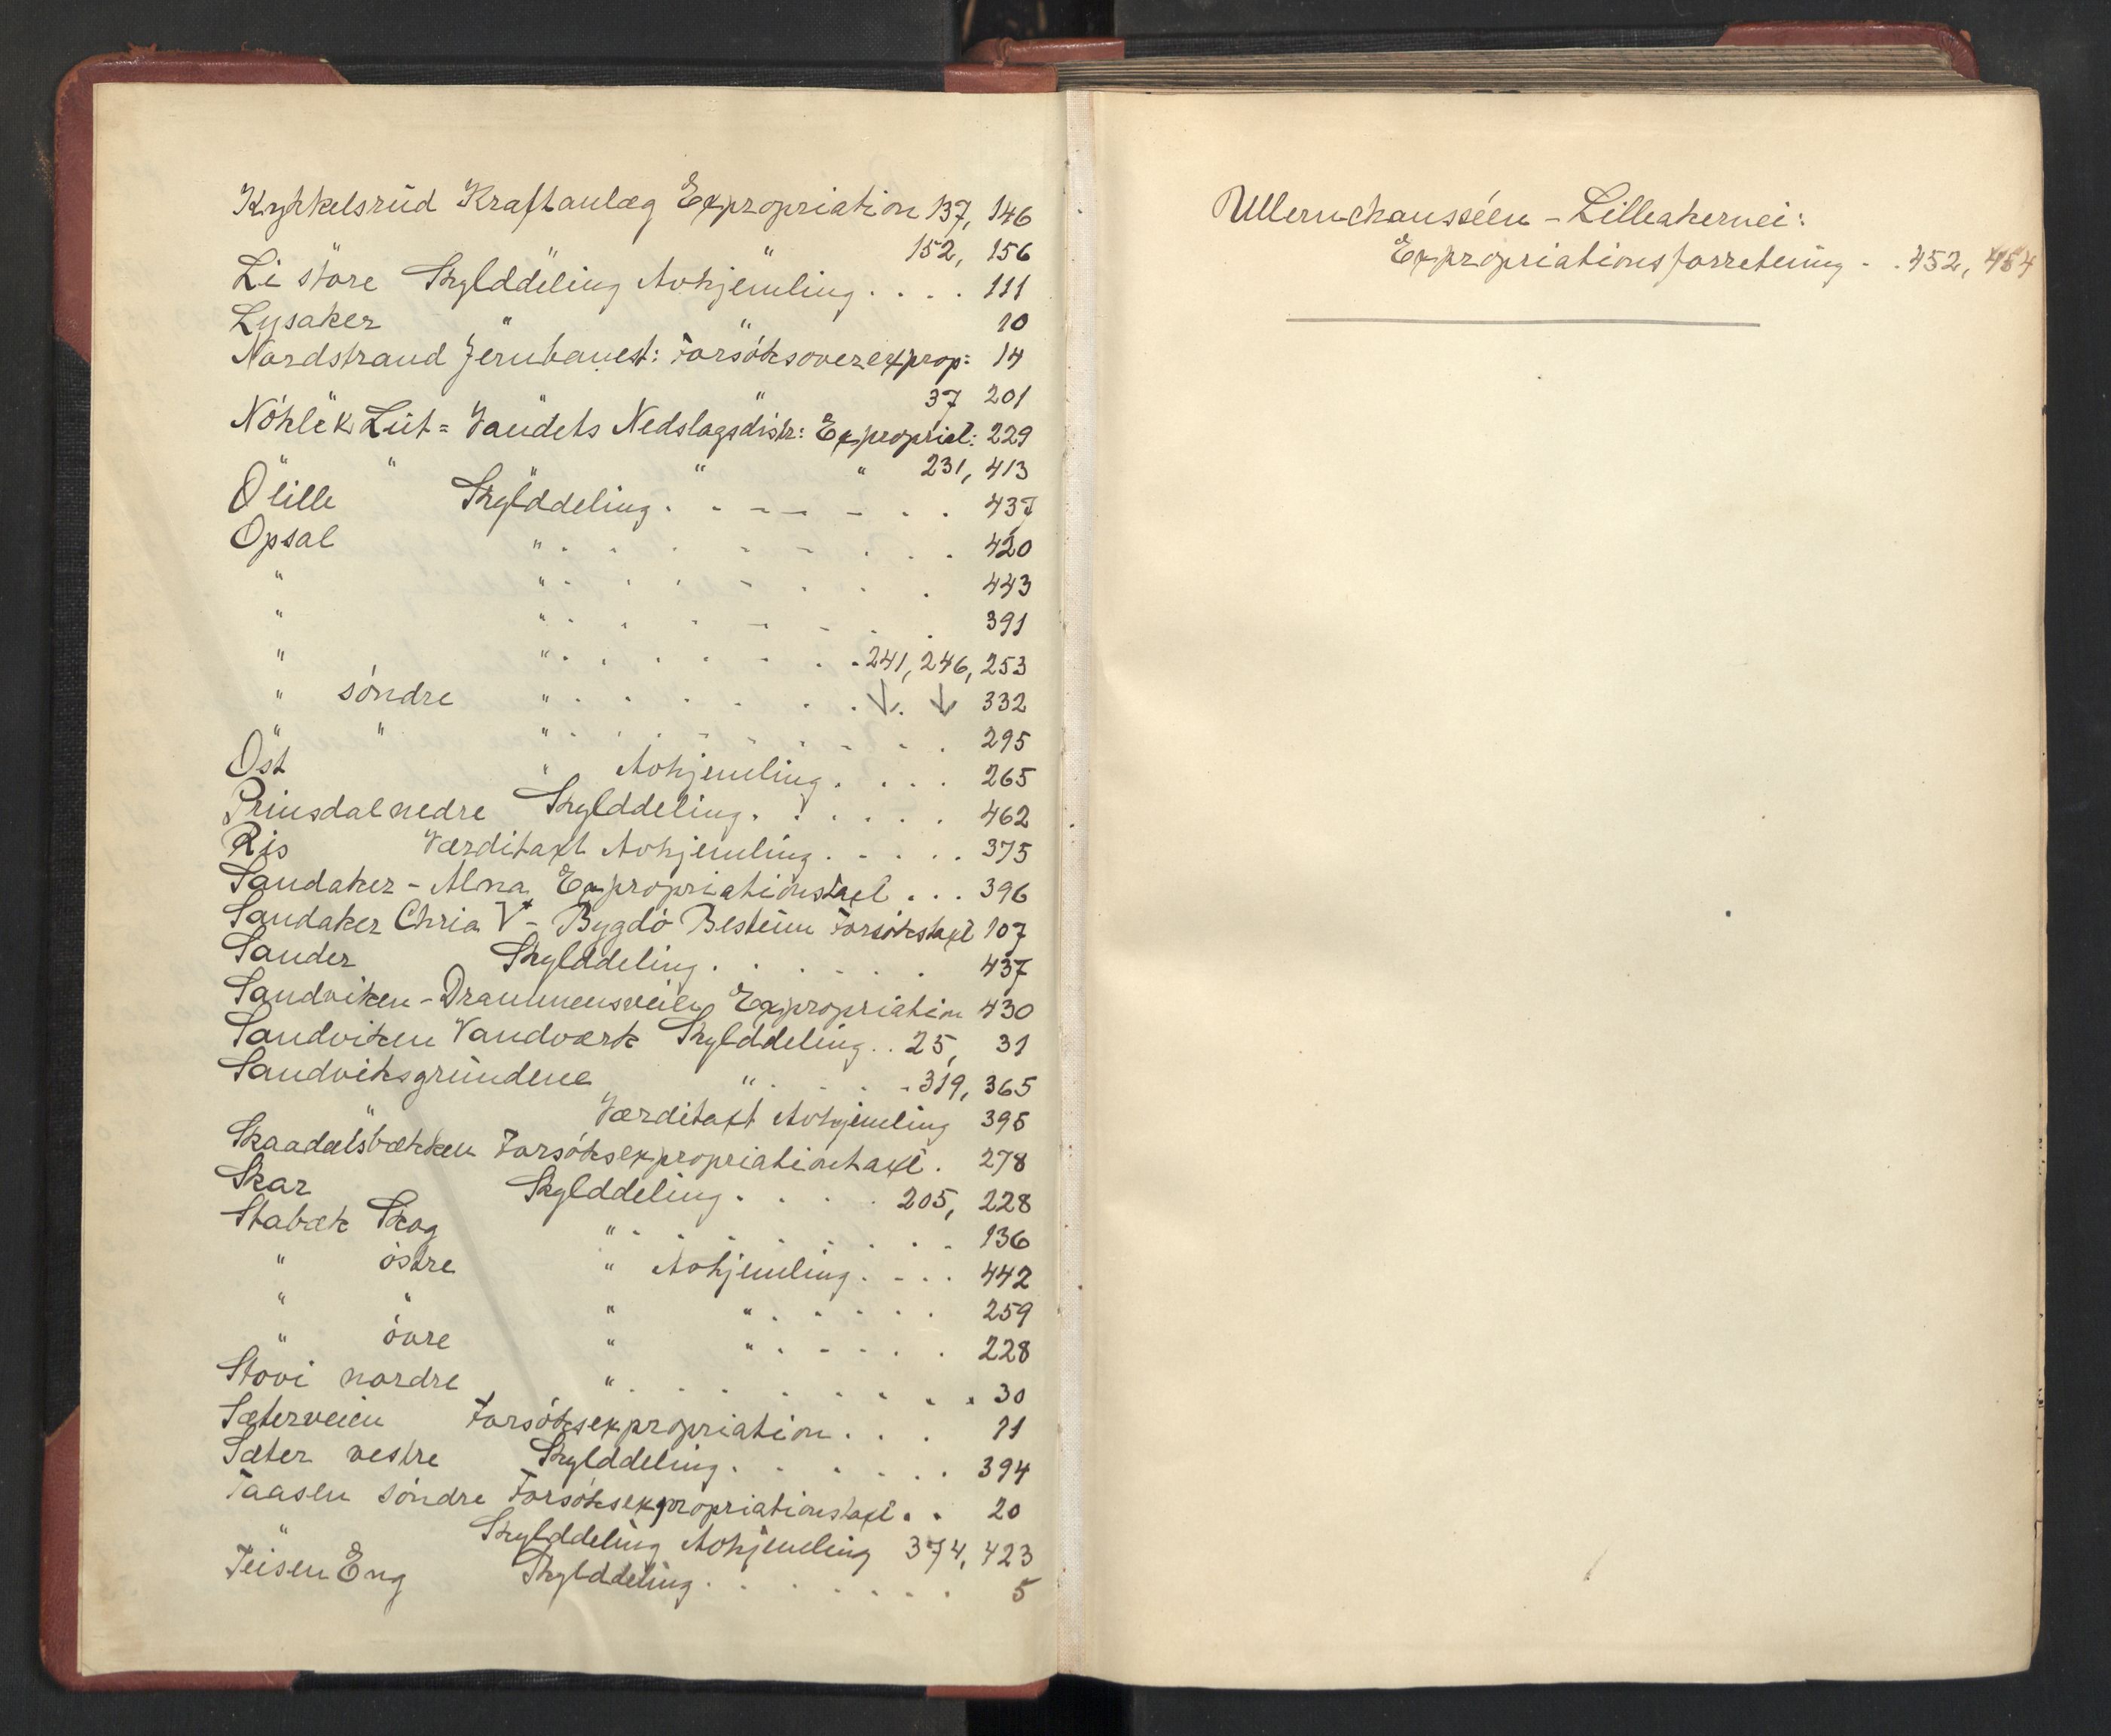 Kykkelsrud Kraftanlæg Expropriation 137, 146
" " 152, 156
Li store Skylddeling Avhjemling . . . . 111
Lysaker " " 10
Nordstrand Jernbanest: Forsøksoverexprop: 14
" " " 37 201
Nøklek. Lut= Vandets Nedslagsdistr: Expropriat: 229
" " " " 231, 413
Ö lille Skylddeling . . - - - - . . 437
Opsal " . . . . . . . . 420
" " . . . . . . . 443
" " . . . . . . . 391
" " . . . . . . . 241, 246, 253
" søndre " . . . . . . . ↓. ↓ 332
" " " . . . . . . . . 295
Öst " Avhjemling . . . . 265
Prinsdal nedre Skylddeling . . . . . . 462
Ris Værditaxt Avhjemling . . . . . 375
Sandaker - Alna Expropriationstaxt . . . 396
Sandaker Chria V - Bygdø Bestein Forsøkstaxt 107
Sander Skylddeling . . . . . . 437
Sandviken - Drammensveien Expropriation 430
Sandviken Vandværk Skylddeling . . 25, 31
Sandviksgrundene " . . . . 319, 365
" Værditaxt Avhjemling 395
Skaadalsbækken Forsøksexpropriationstaxt . 278
Skar Skylddeling . . . . 205, 228
Stabæk Skog " . . . . . . . . 136
" østre " Avhjemling . . . . 442
" " " " . . . . . 259
" øvre " " . . . . . 228
Stovi nordre " . . . . . . . . . 30
Sæterveien Forsøksexpropriation . . . 11
Sæter vestre Skylddeling . . . . . . 394
Taasen søndre Forsøksexpropriationstaxt . . 20
" Skylddeling Avhjemling 374, 423
Teisen Eng Skylddeling . . . . . . . 5
Ullernchausséen - Lilleakervei:
Expropriationsforretning - . 452, 454